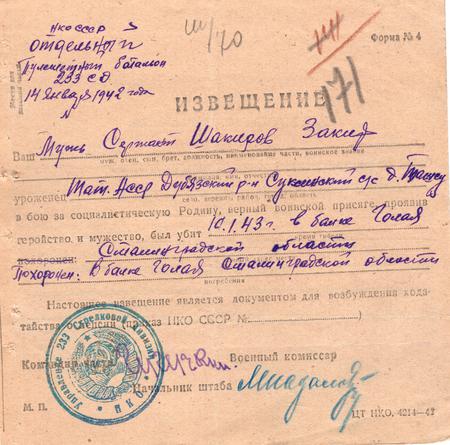 НКО СССР
отдельный
Пулеметный батальон
233 СД
14 января 1942 года
ш/70
Форма № 4
171
ИЗВЕЩЕНИЕ
Ваш Муж Сержант Шакиров Закир
муж, отец, сын, брат, должность, наименование части, воинское звание
уроженец Тат. Асср Дубязский р-н Сукинский с/с д.
в бою за социалистическую Родину, верный воинской присяге, проявив
геройство и мужество, был убит 10.1.43 г. в балке Голая
Сталинградской области
похоронен:
Похоронен: в балке Голая Сталинградской области
погребения
Настоящее извещение является документом для возбуждения хода-
тайства о пенсии (приказ НКО СССР №)
Командир части
Военный комиссар
Начальник штаба
М. П.
ЦТ НКО. 4214—42
Управление 233 Стрелковой Дивизии
НКО